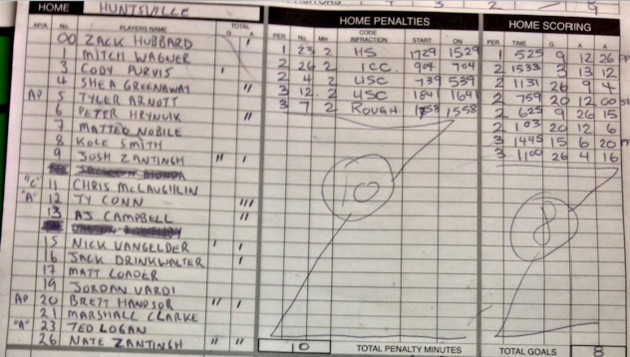 HOME HUNTSVILLE
AP/A No. PLAYERS NAME TOTAL
G A
00 ZACK HUBBARD
1 MITCH WAGNER
3 CODY PURVIS '
4 SHEA GREENAWAY
AP 5 TYLER ARNOTT "
6 PETER HRYNUIK "
7 MATTEO NOBILE
8 KOLE SMITH
9 JOSH ZANTINGH " '
"C" 11 CHRIS McLAUGHLIN
"A" 12 TY CONN '''
13 AJ CAMPBELL "
15 NICK VANGELDER ' '
16 JACK DRINKWALTER '
17 MATT LOADER
19 JORDAN VARDI
AP 20 BRETT HANDSOR " '
21 MARSHALL CLARKE
"A" 23 TED LOGAN
26 NATE ZANTINGH " "
HOME PENALTIES
PER No. Min CODE INFRACTION START ON
1 23 2 HS 1729 1529
2 26 2 ICC 904 704
2 4 2 USC 739 539
3 12 2 USC 1841 1641
3 7 2 ROUGH 1558
10
10 TOTAL PENALTY MINUTES
HOME SCORING
PER TIME G A A
1 525 9 12 26 PP
2 1533 3 13 12
2 1131 26 9 4
2 759 20 12 00
2 625 9 26 15
2 103 20 12 6
3 1445 15 6 20
3 1100 26 4 16
8
TOTAL GOALS 8